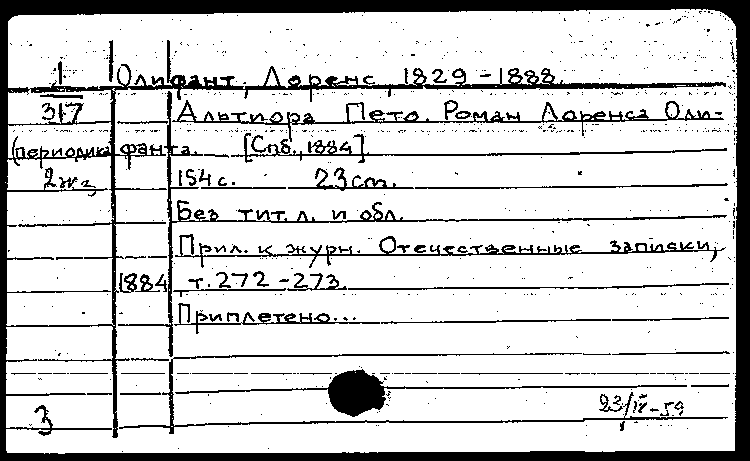 1 Олифант, Лоренс, 1829-1888.
317 Альтиора Пето. Роман Лоренса Оли-
(периодика фанта. [Спб., 1884].
2жз 154 с. 23 cm.
Без тит. л. и обл.
Прил. к журн. Отечественные записки,
1884, т. 272-273.
Приплетено...
3 23/IV-59